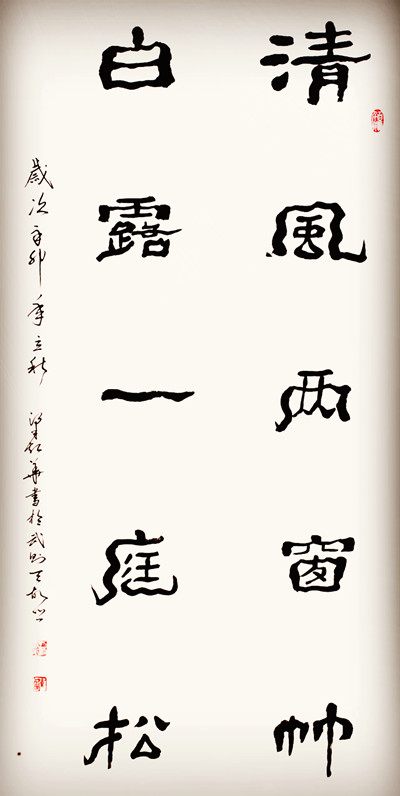 清風兩窗竹
白露一庭松
歲次辛卯年立秋 梁華書於武則天故里